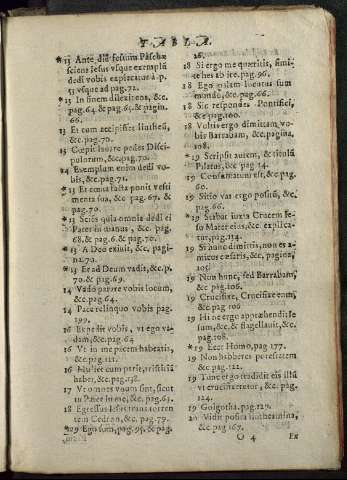 TABLA.
*13 Ante diẽ festum Paschæ
sciens Iesus vsque exemplũ
dedi vobis explicatur à p.
53 vsque ad pag. 72.
* 13 In finem dilexit eos, &c.
pag. 64. & pag. 65. & pagin.
66.
13 Et cum accepisset lintheũ,
&c. pag. 70.
13 Cœpit lauare pedes Disci-
pulorum, &c. pag. 70.
14 Exemplum enim dedi vo-
bis, &c. pag. 71.
*13 Et cœna facta ponit vesti
menta sua, &c. pag. 67. &
pag. 70.
*13 Sciẽs quia omnia dedit ei
Pater in manus, &c. pag.
68. & pag. 6. & pag. 70.
*13 A Deo exiuit, &c. pagi-
na 70.
*13 Et ad Deum vadit, &c. p.
70. & pag. 69.
14 Vado parare vobis locum,
&c. pag. 64.
14 Pacẽ relinquo vobis pag.
199.
16 Expedit vobis, vt ego va-
dam, &c. pag. 64
16 Vt in me pacem habeatis,
&c. pag. 121.
16 Mulier cum parit, tristitiã
habet, &c. pag. 138.
17 Vt omnes vnum sint, sicut
tu Pater in me, &c. pag. 63.
18 Egressus Iesus trans torren
tem Cedron, &c. pag. 64.
*19 Ego sum, pag. 95. & pag.
26.
18 Si ergo me quæritis, sini-
te hos abire. pag. 96.
18 Ego palam locutus sum
mundo, &c. pag. 66.
18 Sic respondes Pontifici,
&c. pag. 100.
18 Vultis ergo dimittam vo-
bis Barrabam, &c. pagina
108.
* 19 Scripsit autem, & titulũ
Pilatus, &c. pag. 14.
19 Consumatum est, &c. pag
60.
19 Sitio vas ergo positũ, &c.
pag. 66.
*19 Stabat iuxta Crucem Ie-
su Mater eius, &c. explica-
tur, pag. 134.
19 Si hunc dimittis, non es a-
micus cæsaris, &c. pagina
105.
19 Non hunc, sed Barrabam,
&c. pag. 106.
19 Crucifixe, Crucifixe eum,
&c. pag. 106
19 Hi ne ergo appræhendit Ie
sum, &c, & flagellauit, &c.
pag. 108.
*19 Ecce Homo, pag. 177.
19 Non habberes potestatem
&c. pag. 122.
19 Tunc ergo tradidit eis illũ
vt crucifigeretur, &c. pag.
124.
19 Golgotha. pag. 129.
20 Vidit posita linthæmina,
&c. pag 167.
O 4 Ex